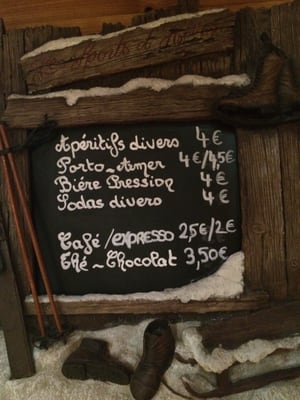 Apéritifs divers 4€
Porto - Amer 4€/4,5€
Bière Pression 4€
Sodas divers 4€
Café / EXPRESSO 2,5€/2€
Thé - Chocolat 3,50€